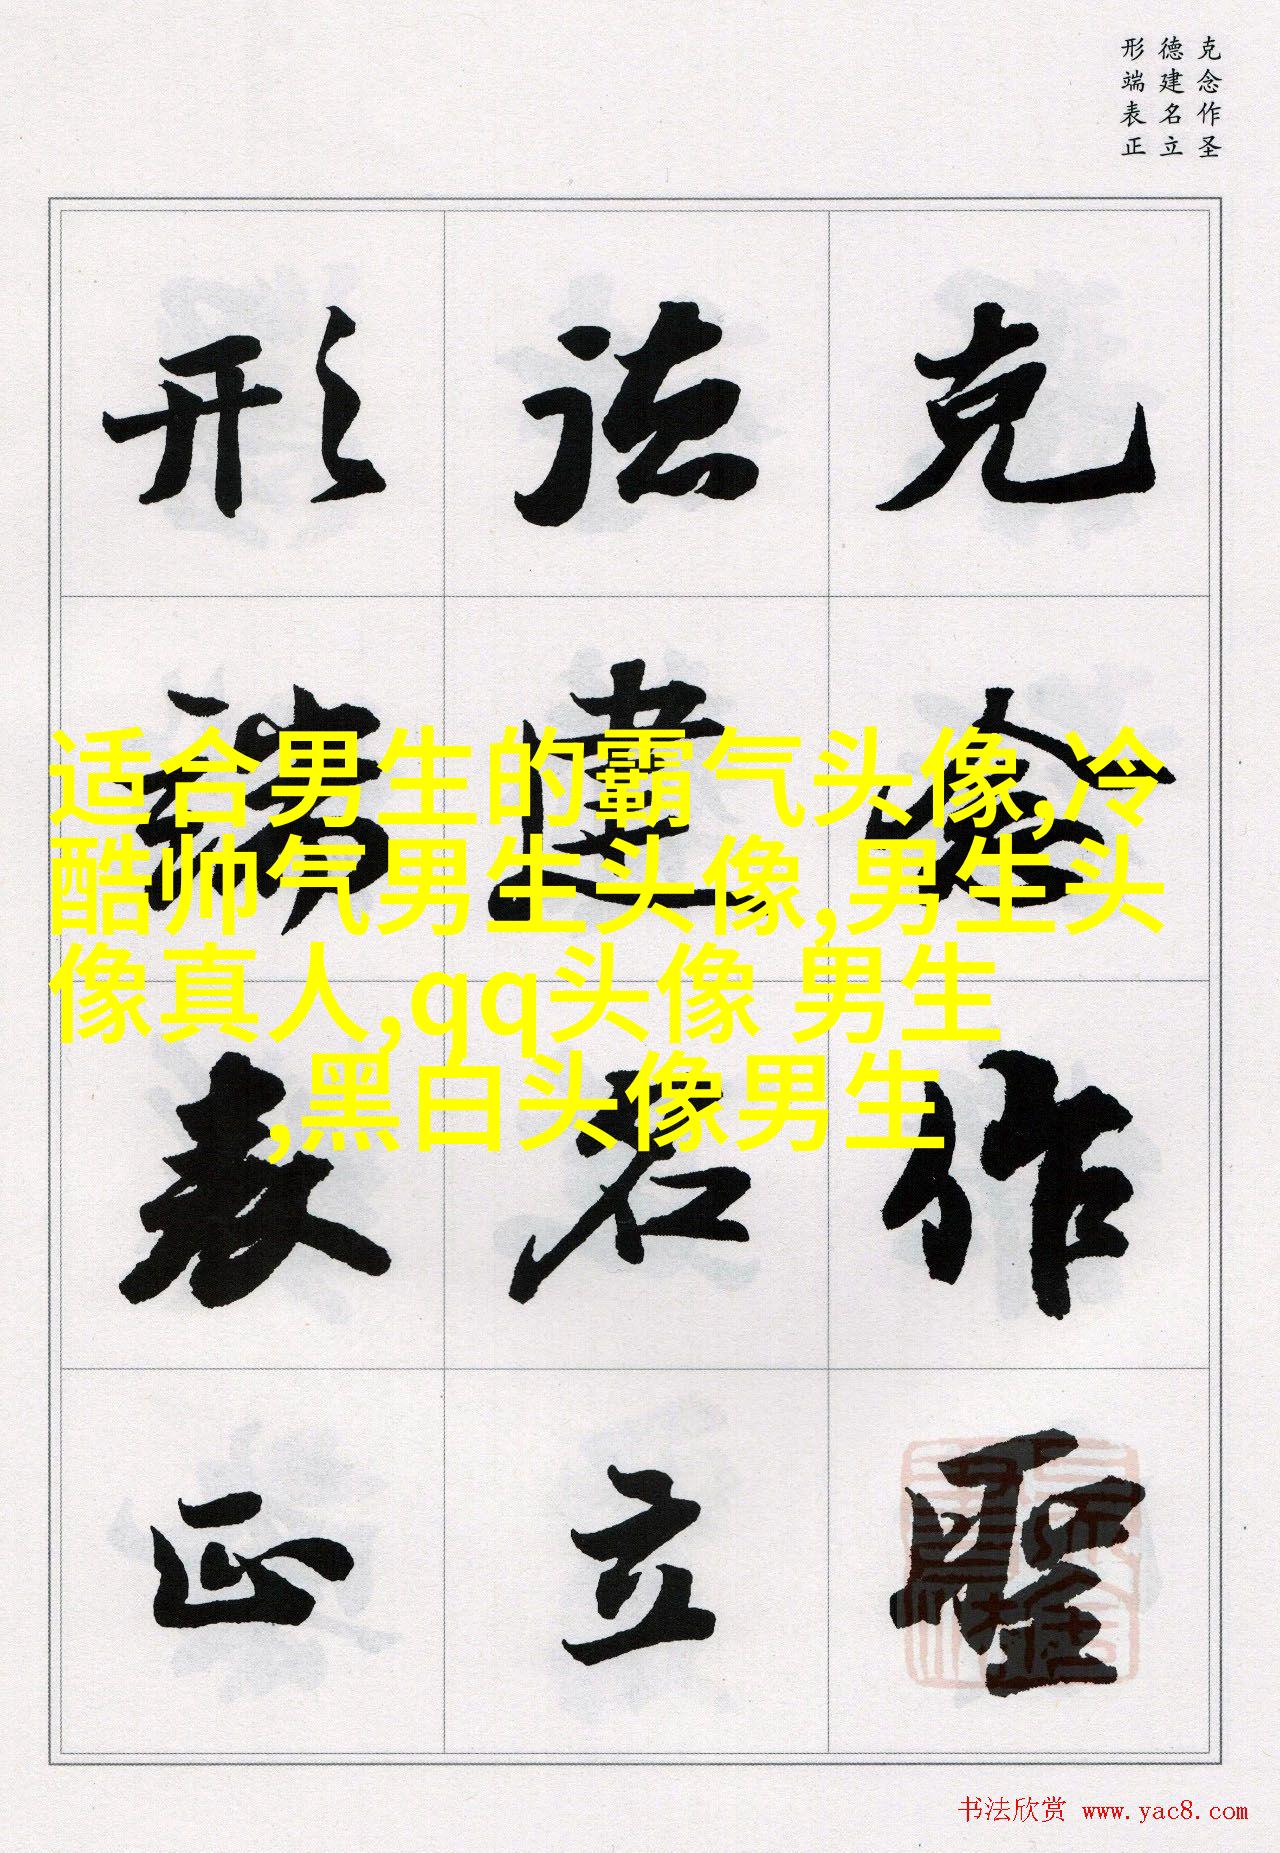 克念作圣
德建名立
形端表正
克念作聖
德建名立
形端表正
适合男生的霸气头像,冷
酷帅气男生头像,男生头
像真人,qq头像 男生
,黑白头像男生
书法欣赏 www.yac8.com